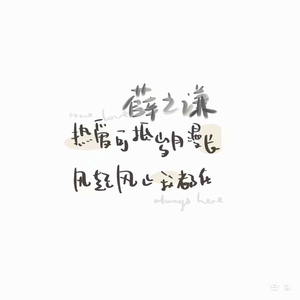 薛之谦
your love
热爱可抵岁月漫长
风起风止我都在
always here